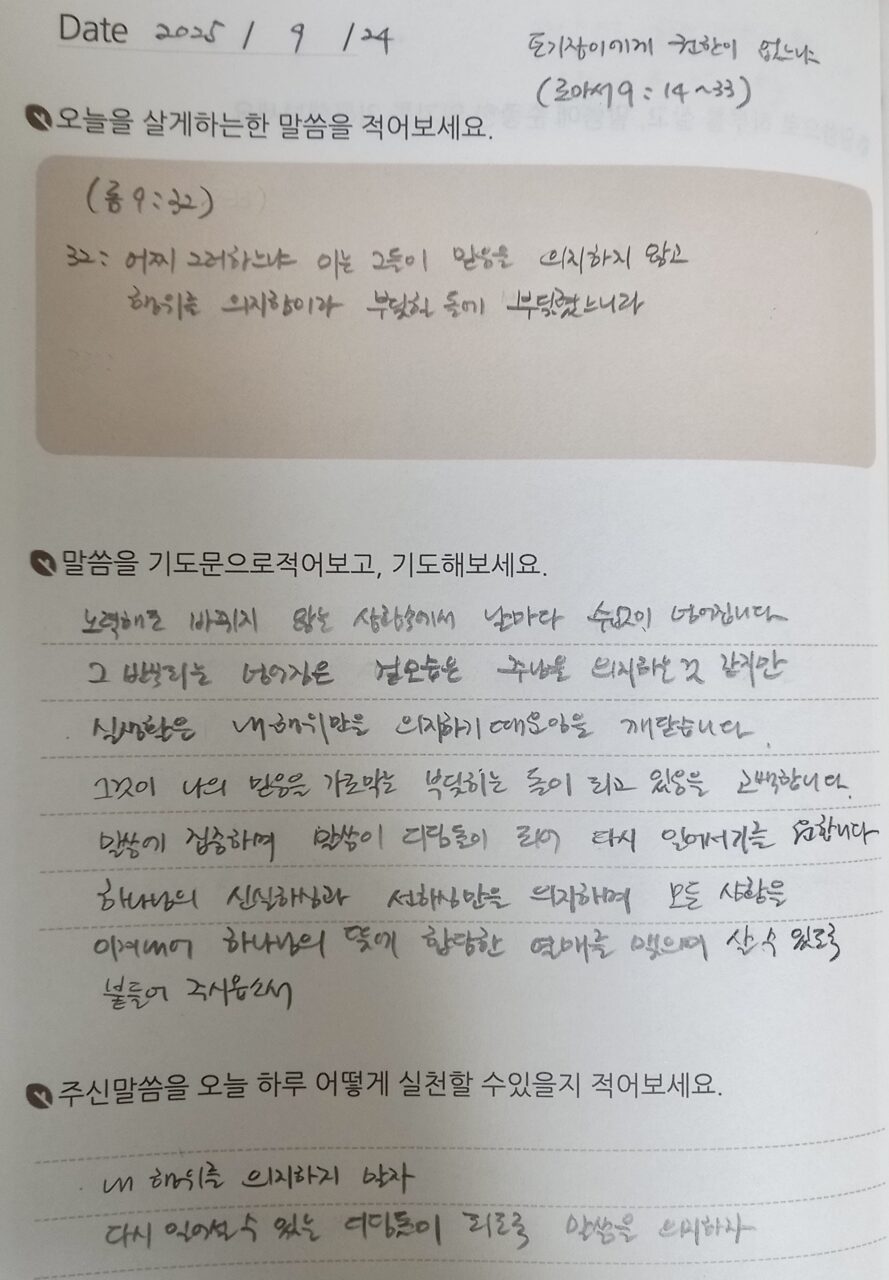 Date 2025 / 9 / 24
토기장이에게 권한이 없느냐
(로마서 9 : 14 ~ 33)
오늘을 살게하는한 말씀을 적어보세요.
(롬 9 : 32)
32 : 어찌 그러하느냐 이는 그들이 믿음을 의지하지 않고
행위를 의지함이라 부딪힐 돌에 부딪쳤느니라
말씀을 기도문으로적어보고, 기도해보세요.
노력해도 바뀌지 않는 상황속에서 날마다 수없이 넘어집니다
그 반복되는 넘어짐은 겉모습은 주님을 의지하는것 같지만
실생활은 내 행위만을 의지하기 때문임을 깨닫습니다
그것이 나의 믿음을 가로막는 부딪히는 돌이 되고 있음을 고백합니다.
말씀에 집중하며 말씀이 디딤돌이 되어 다시 일어서기를 원합니다
하나님의 신실하심과 선하심만을 의지하며 모든 상황을
이겨내어 하나님의 뜻에 합당한 열매를 맺으며 살 수 있도록
붙들어 주시옵소서
주신말씀을 오늘 하루 어떻게 실천할 수있을지 적어보세요.
내 행위를 의지하지 말자
다시 일어설 수 있는 디딤돌이 되도록 말씀을 의지하자